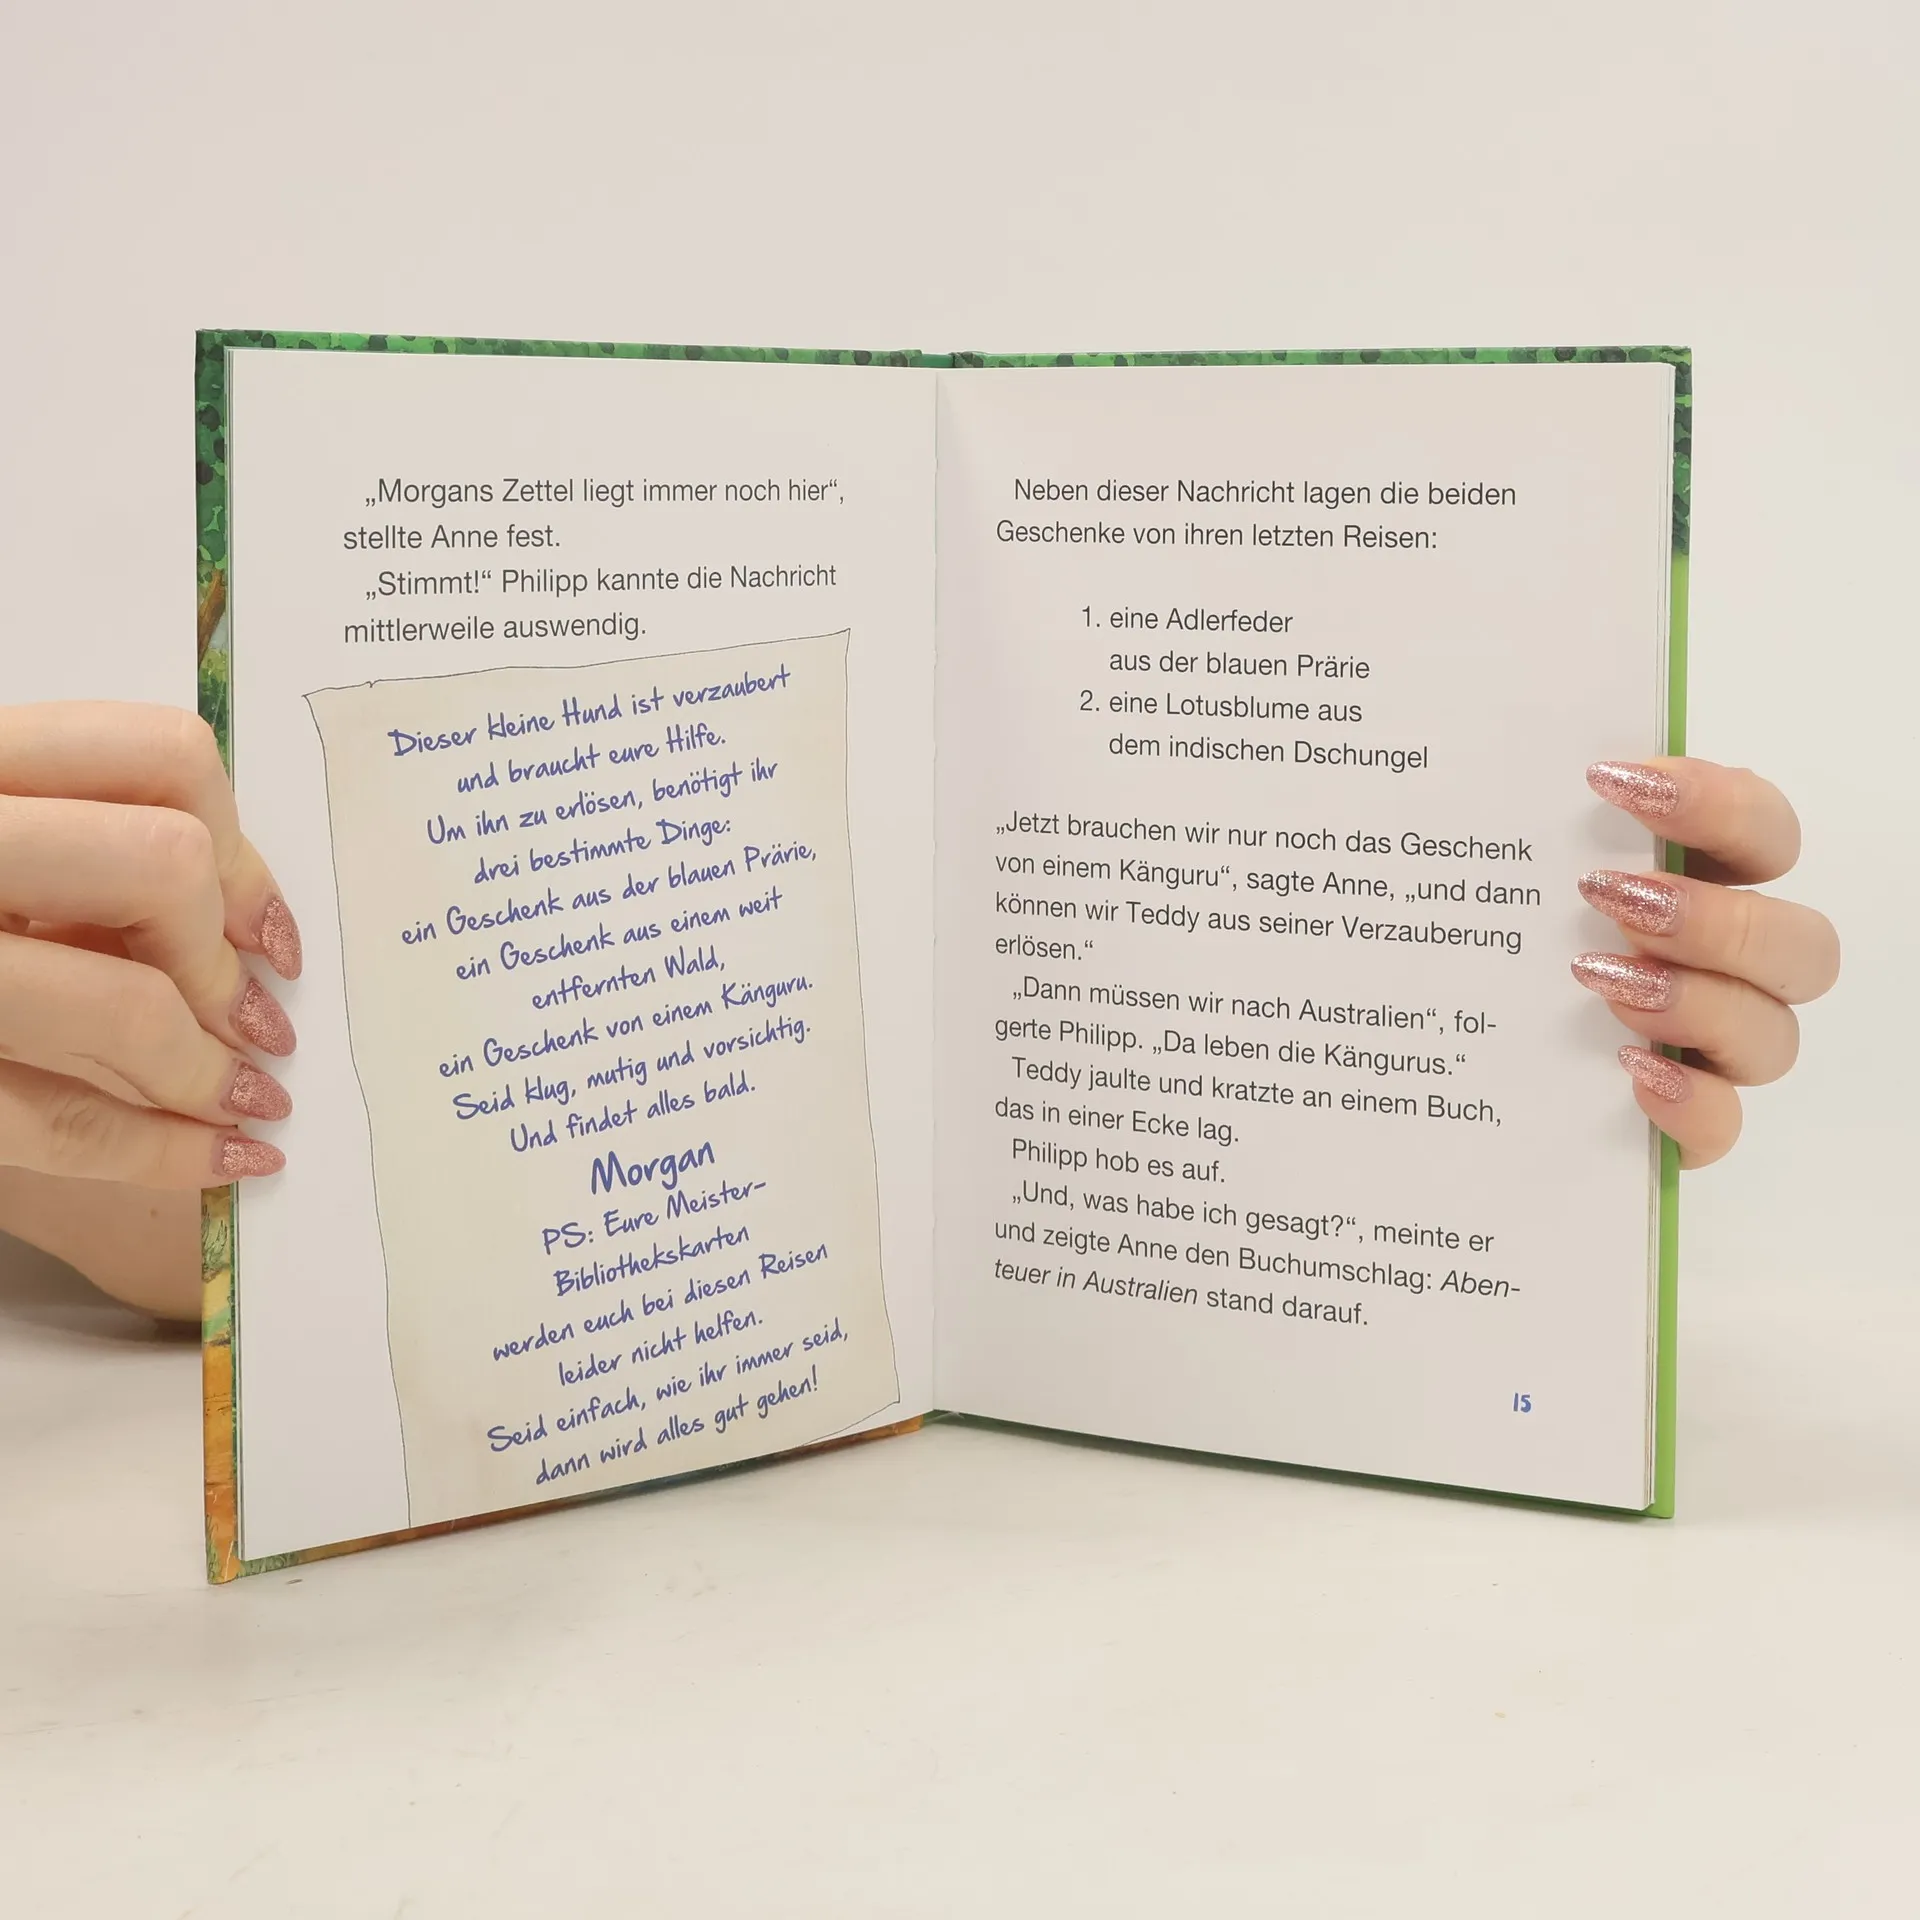 „Morgans Zettel liegt immer noch hier“,
stellte Anne fest.
„Stimmt!“ Philipp kannte die Nachricht
mittlerweile auswendig.
Dieser kleine Hund ist verzaubert
und braucht eure Hilfe.
Um ihn zu erlösen, benötigt ihr
drei bestimmte Dinge:
ein Geschenk aus der blauen Prärie,
ein Geschenk aus einem weit
entfernten Wald,
ein Geschenk von einem Känguru.
Seid klug, mutig und vorsichtig.
Und findet alles bald.
Morgan
PS: Eure Meister-
Bibliothekskarten
werden euch bei diesen Reisen
leider nicht helfen.
Seid einfach, wie ihr immer seid,
dann wird alles gut gehen!
Neben dieser Nachricht lagen die beiden
Geschenke von ihren letzten Reisen:
1. eine Adlerfeder
aus der blauen Prärie
2. eine Lotusblume aus
dem indischen Dschungel
„Jetzt brauchen wir nur noch das Geschenk
von einem Känguru“, sagte Anne, „und dann
können wir Teddy aus seiner Verzauberung
erlösen.“
„Dann müssen wir nach Australien“, fol-
gerte Philipp. „Da leben die Kängurus.“
Teddy jaulte und kratzte an einem Buch,
das in einer Ecke lag.
Philipp hob es auf.
„Und, was habe ich gesagt?“, meinte er
und zeigte Anne den Buchumschlag: Aben-
teuer in Australien stand darauf.
15